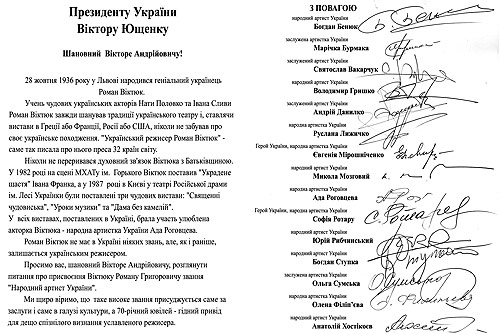 Президенту України
Віктору Ющенку
Шановний Вікторе Андрійовичу!
28 жовтня 1936 року у Львові народився геніальний українець
Роман Віктюк.
Учень чудових українських акторів Нати Половко та Івана Сливи
Роман Віктюк завжди шанував традиції українського театру і, ставлячи
вистави в Греції або Франції, Росії або США, ніколи не забував про
своє українське походження. "Український режисер Роман Віктюк" -
саме так писала про нього преса 32 країн світу.
Ніколи не переривався духовний зв'язок Віктюка з Батьківщиною.
У 1982 році на сцені МХАТу ім. Горького Віктюк поставив "Украдене
щастя" Івана Франка, а у 1987 році в Києві у театрі Російської драми
ім. Лесі Українки були поставлені три чудових вистави: "Священні
чудовиська", "Уроки музики" та "Дама без камелій".
У всіх виставах, поставлених в Україні, брала участь улюблена
акторка Віктюка - народна артистка України Ада Роговцева.
Роман Віктюк не має в Україні ніяких звань, але, як і раніше,
залишається українським режисером.
Просимо вас, шановний Вікторе Андрійовичу, розглянути
питання про присвоєння Віктюку Роману Григоровичу звання
"Народний артист України".
Ми щиро віримо, що таке високе звання присуджується саме за
заслуги і саме в галузі культури, а 70-річний ювілей - гідний привід
для дещо спізнілого визнання уславленого режисера.
З ПОВАГОЮ
народний артист України
Богдан Бенюк
заслужена артистка України
Марічка Бурмака
заслужений артист України
Святослав Вакарчук
народний артист України
Володимир Гришко
заслужений артист України
Андрій Данилко
народна артистка України
Руслана Лижичко
Герой України, народний артист України
Євгенія Мірошніченко
народний артист України
Микола Мозговий
народна артистка України
Ада Роговцева
Герой України, народна артистка України
Софія Ротару
народний артист України
Юрій Рибчинський
народний артист України
Богдан Ступка
народна артистка України
Ольга Сумська
народна артистка України
Олена Філіп'єва
народний артист України
Анатолій Хостікоєв